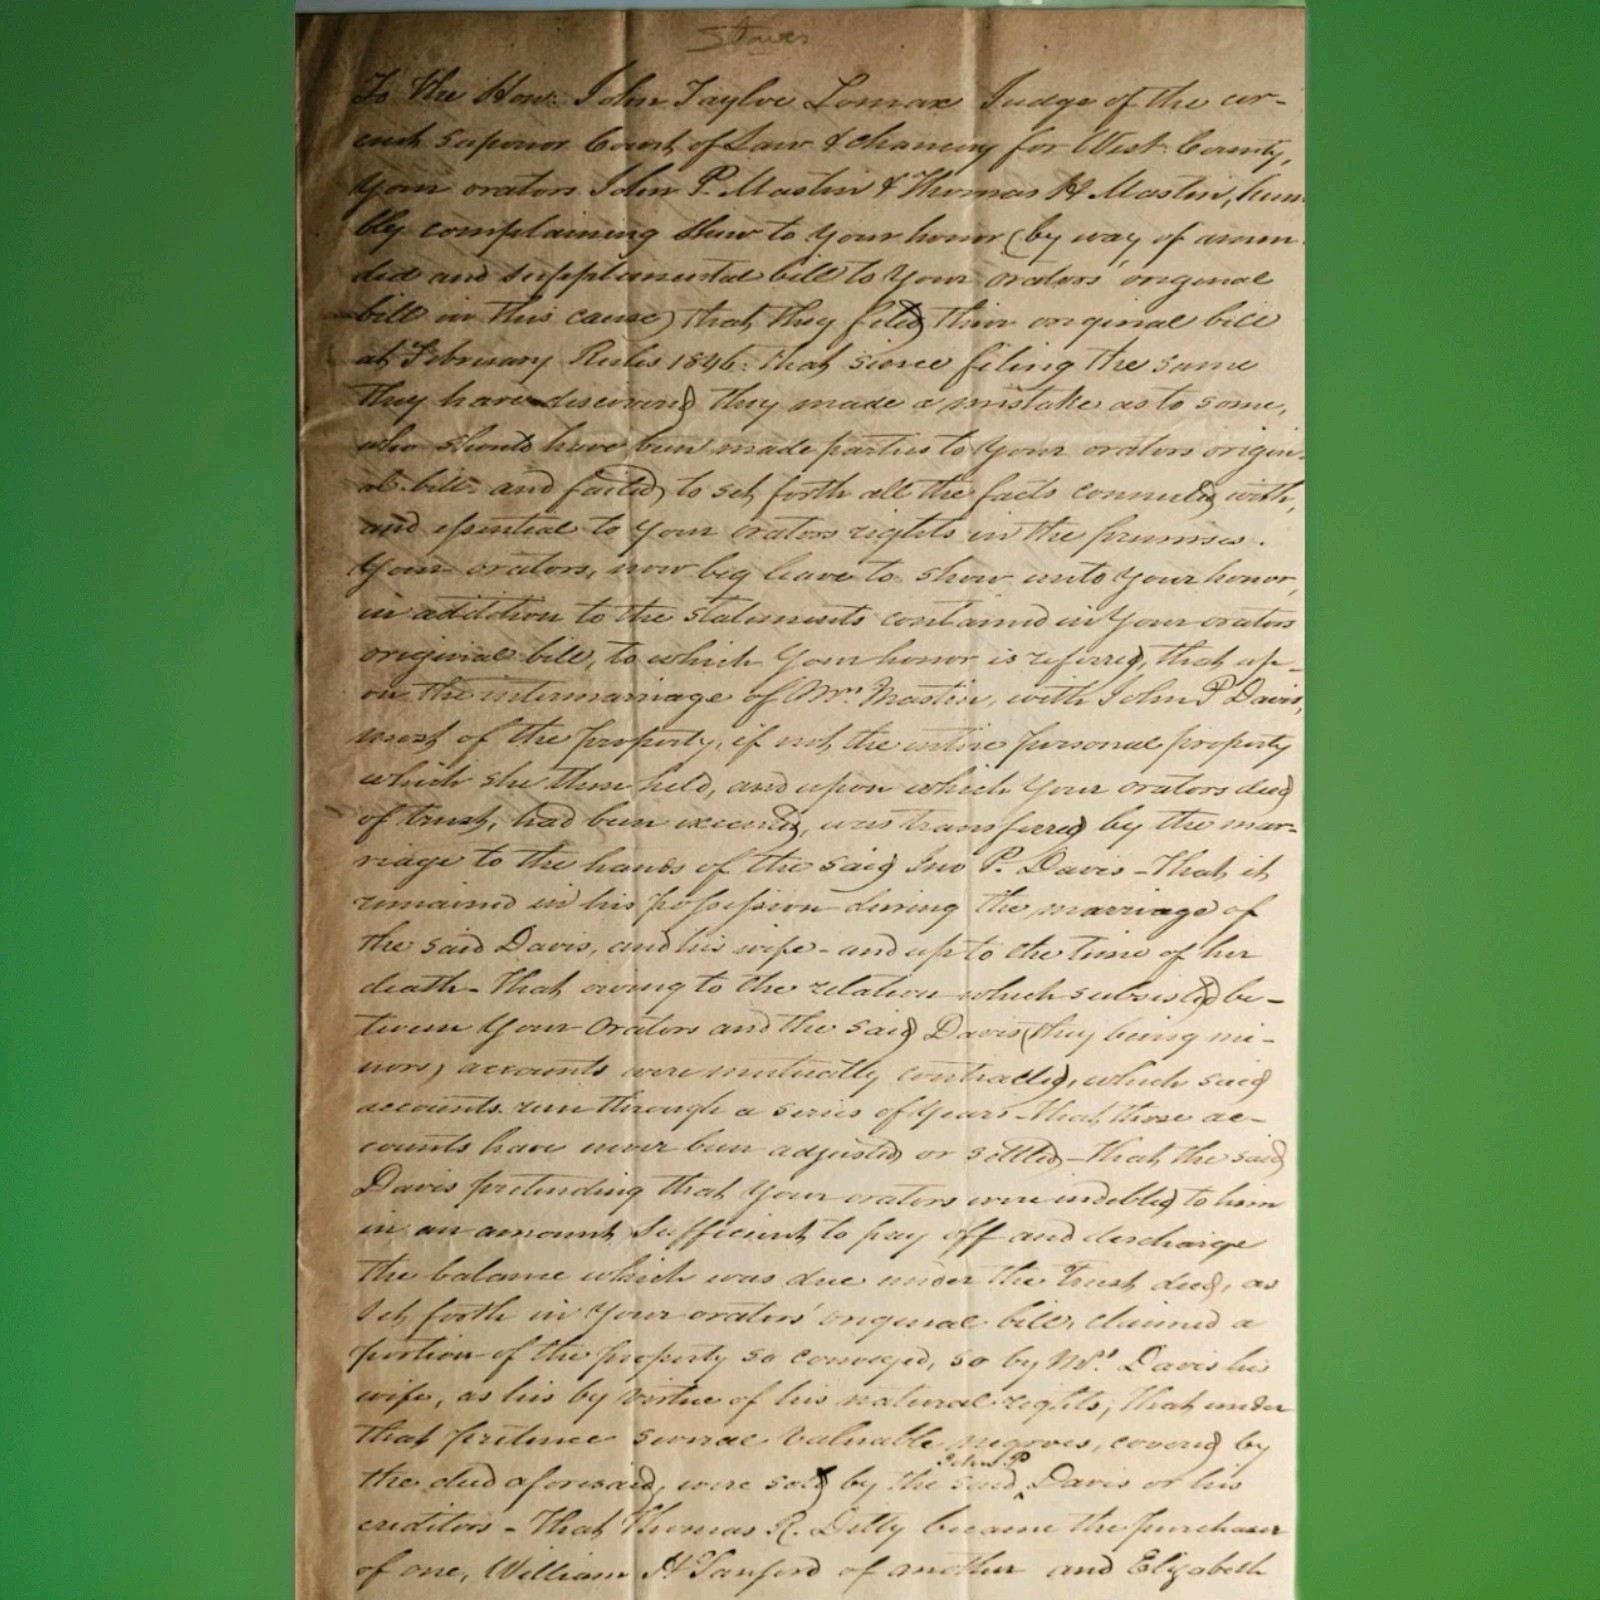 To the Hon: John Tayloe Lomax Judge of the cir-
cuit superior Court of Law & chancery for West. County,
Your orators John P. Mastin & Thomas H Mastin, hum
bly complaining shew to your honor (by way of amen
ded and supplemental bill to your orators' original
bill in this cause) that they filed their original bill
at February Rules 1846: that since filing the same
they have discovered they made a mistake as to some,
who should have been made parties to your orators origin-
al bill- and failed to set forth all the facts connected with,
and essential to your orators rights in the premises.
Your orators, now beg leave to show unto your honor,
in addition to the statements contained in your orators
original bill, to which your honor is referred, that up-
on the intermarriage of Mrs. Mastin, with John P Davis,
most of the property, if not the entire personal property
which she then held, and upon which your orators deed
of trust, had been executed, was transferred by the mar-
riage to the hands of the said Jno P. Davis - That it
remained in his possession during the marriage of
the said Davis, and his wife - and up to the time of her
death - That owing to the relation which subsisted be-
tween your orators and the said Davis (they being mi-
nors) accounts were mutually contracted, which said
accounts run through a series of years - that those ac-
counts have never been adjusted or settled - that the said
Davis pretending that your orators were indebted to him
in an amount sufficient to pay off and discharge
the balance which was due under the trust deed, as
set forth in your orators' original bill, claimed a
portion of the property so conveyed, so by Mrs. Davis his
wife, as his by virtue of his natural rights; that under
that pretence several valuable negroes, covered by
the deed aforesaid, were sold by the said John P Davis or his
creditors - That Thomas R. Dilly became the purchaser
of one, William H Sanford of another and Elizabeth